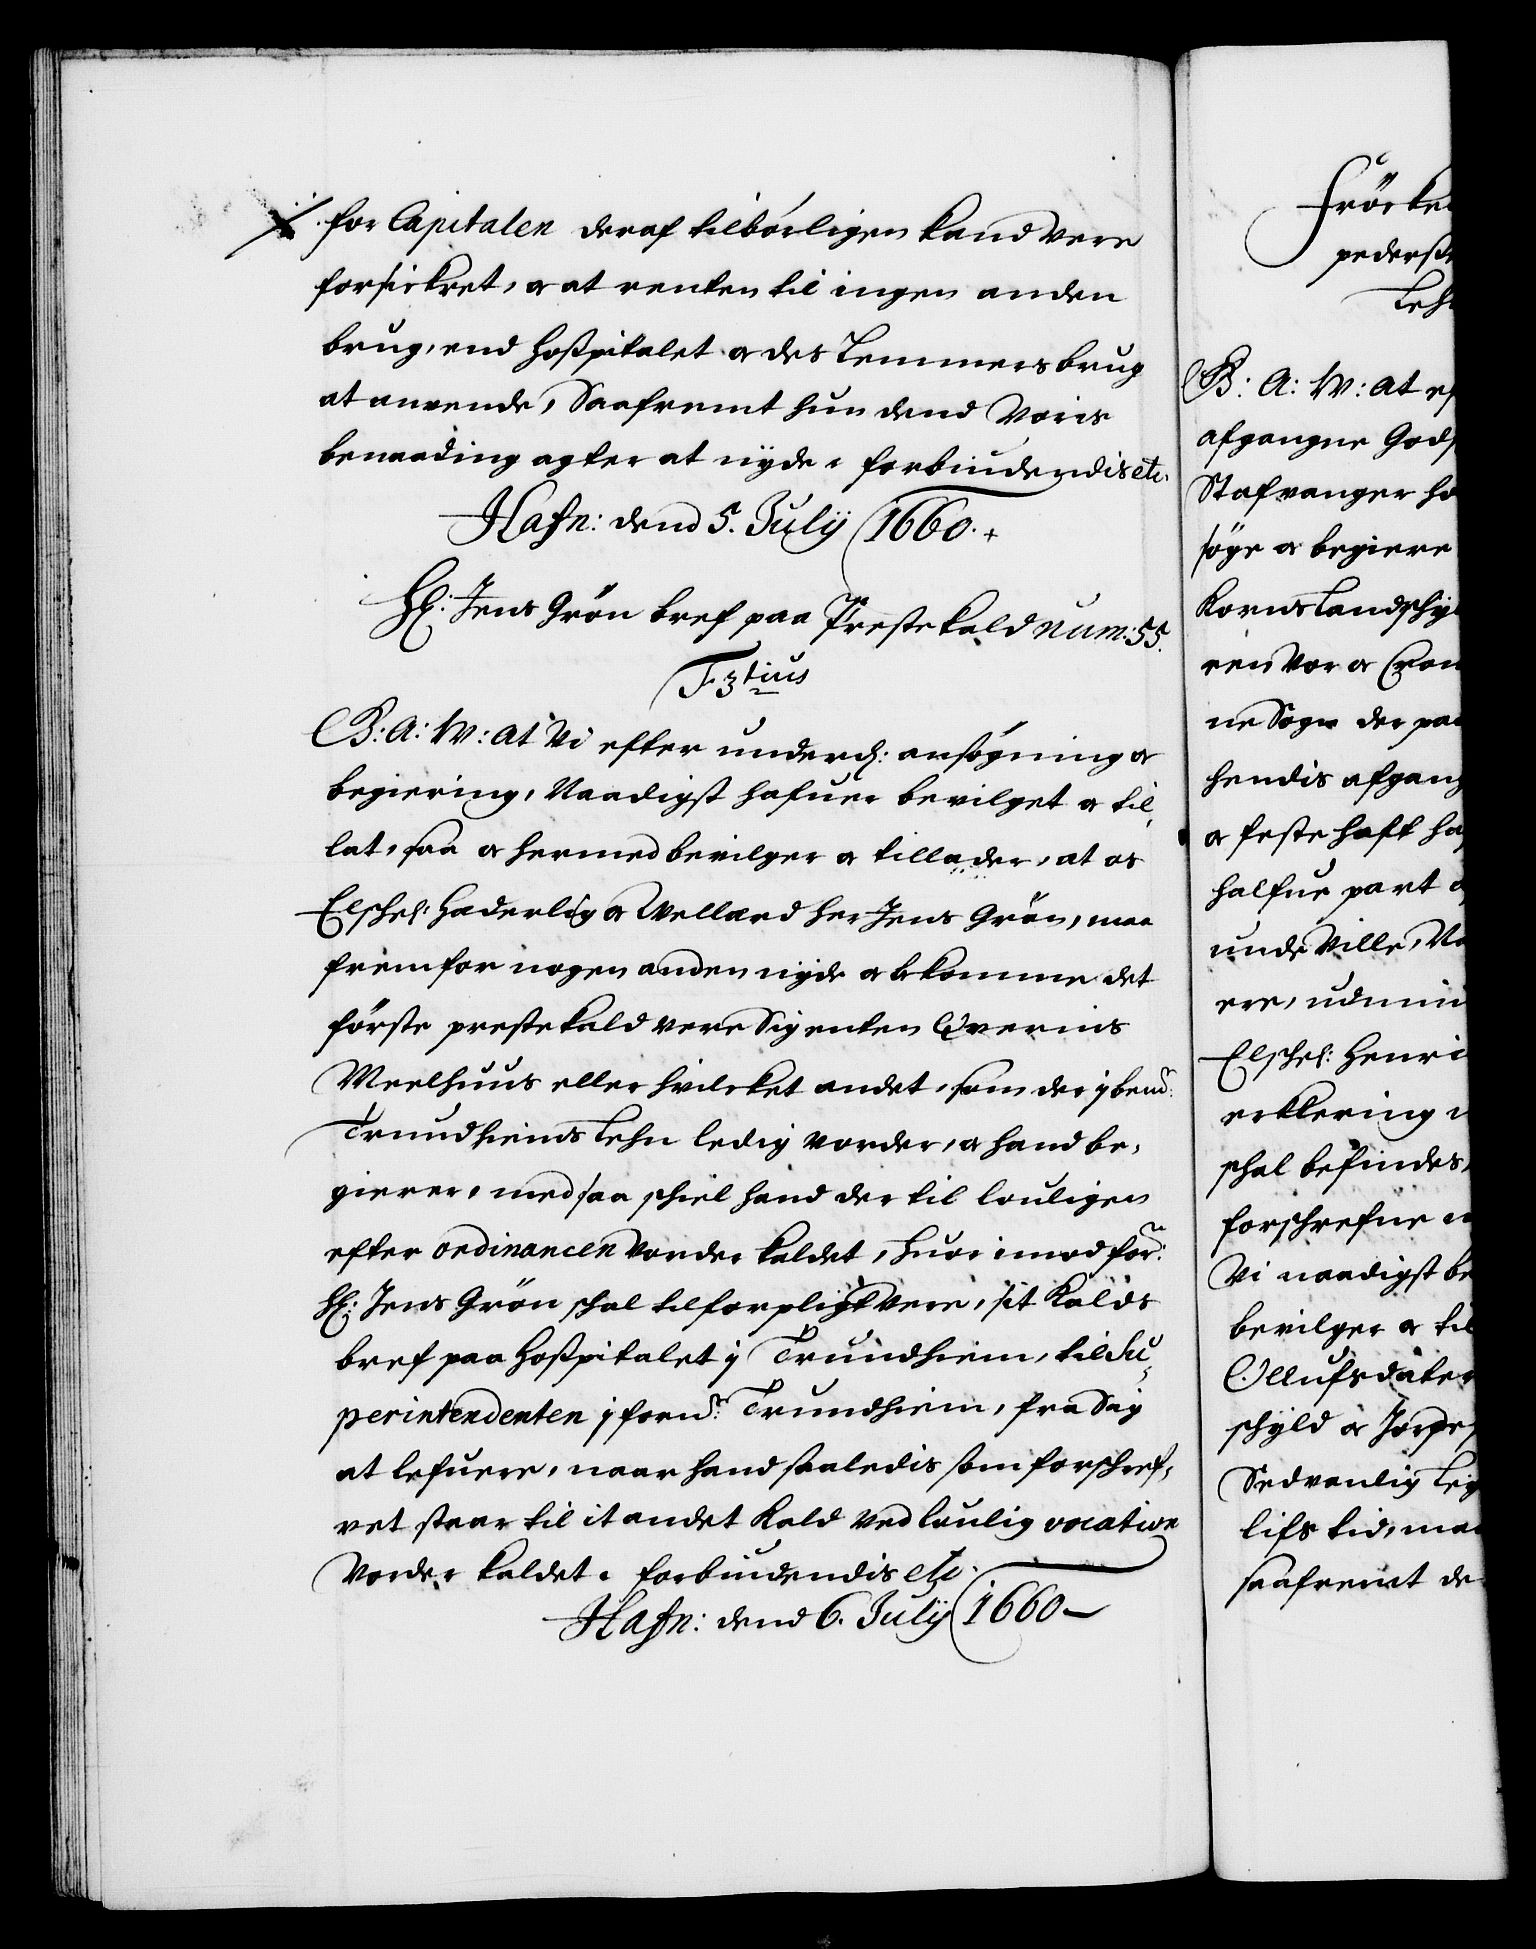 for Capitalen deraf tilbórligen kand vere
forsickret, og at renten til ingen anden
brug, end Hosspitalet og des Lemmers brug
at anvende, Saafremt hun dend voris
benaading agter at nyde. forbiudendis etc.
Hafn: dend 5. Julij 1660.
H: Jens Grön bref paa Prestekald num: 55.
F. 3tius
B: A: W: at Vi efter underd: ansøgning og
begiering, Naadigst hafuer bevilget og til,
lat, saa og hermed bevilger og tillader, at os
Elschel: Hæderlig og Wellærd her Jens Grön, maa
fremfor nogen anden nyde og bekomme det
förste prestekald vere Sig enten Qvernis
Meelhuus eller hvilcket andet, som der j bemt:
Trundhiems Lehn ledig vorder, og hand be,
gierer, med saa schiel hand der til louligen
efter ordinancen vorder kaldet, huor imod for:ne
H: Jens Grön schal tilforpligt vere, sit Kalds
bref paa Hosspitalet j Trundhiem, til Su,
perintendenten j forn:te Trundhiem, fra Sig
at lefuere, naar hand saaledis som forschref,
vet staar til it andet Kald ved loulig vocation
vorder kaldet. forbiudendis etc.
Hafn: dend 6. Julij 1660
Fröcke
peders
Leh
B: A: W: at ef
afgangne Gods
Stafvanger ha
søge og begiere
Korns Landschyl
een vor og Cron
ne Sogn der paa
hendis afgang
og feste haft ha
halfue part
unde ville, Va
ere, udmin
Elschel: Henri
erklering
schal befindes,
forschrefne
Vi naadigst be
bevilger og til
Ollufsdater
schyld og Jorpe
Sedvanlig Leg
lifs tid, maa
saafremt de